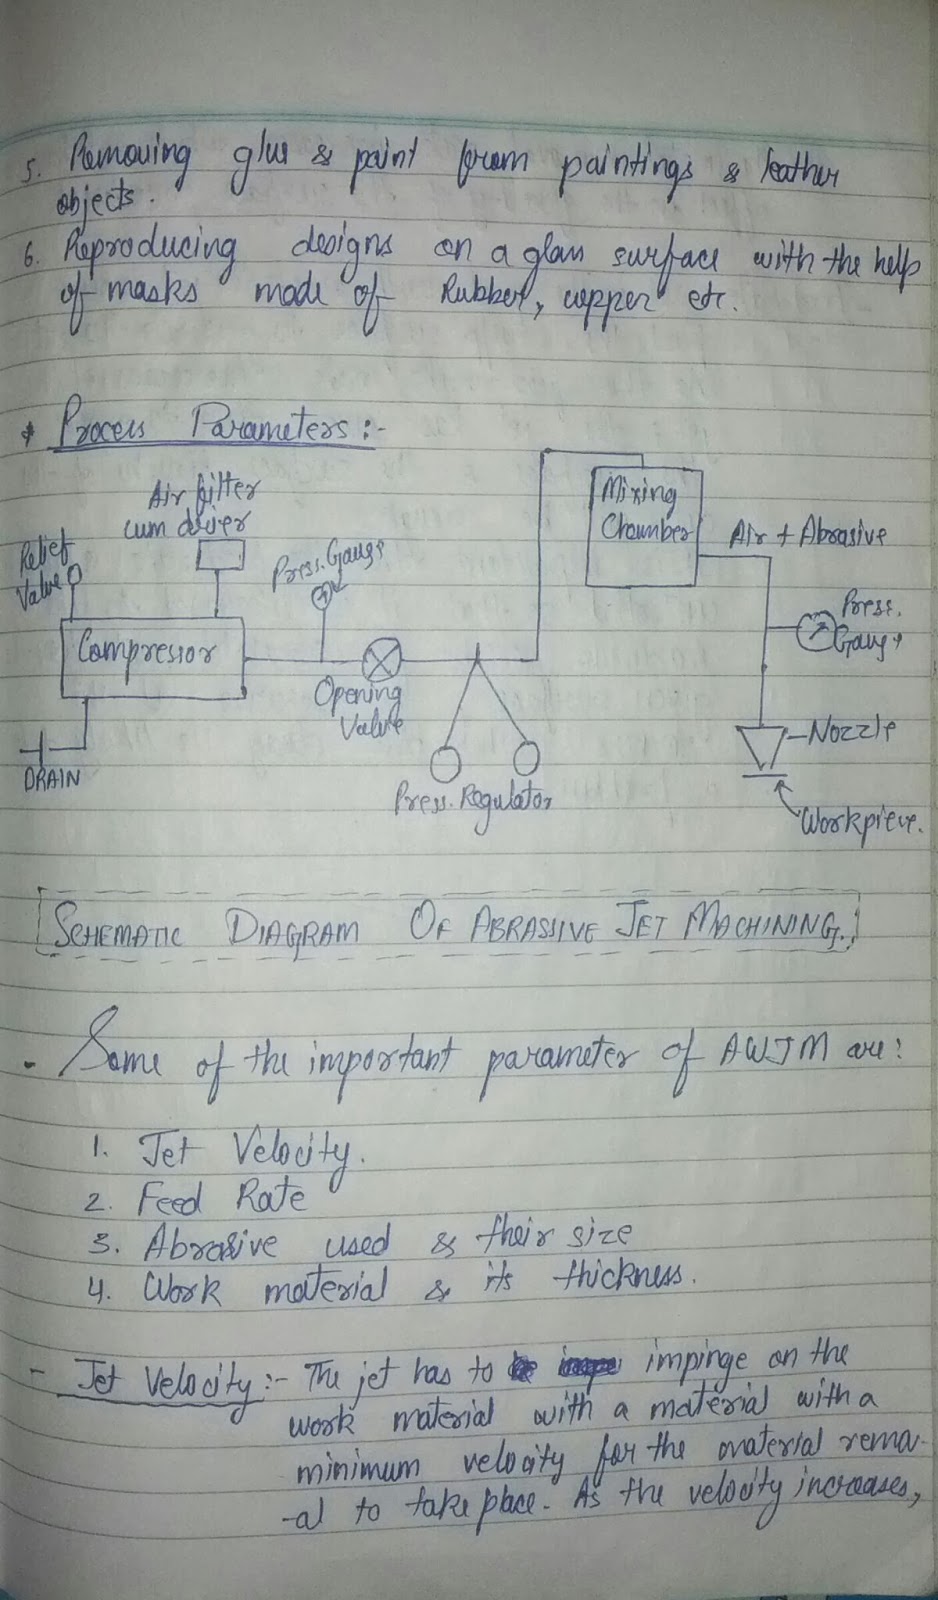 5. Removing glue & paint from paintings & leather
objects.
6. Reproducing designs on a glass surface with the help
of masks made of Rubber, copper etc.
* Process Parameters :-
Air filter
cum drier
Relief
Valve
Press. Gauge
Mixing
Chamber
Air + Abrasive
Press.
Gauge
Compressor
Opening
Valve
DRAIN
Nozzle
Press. Regulator
Workpiece.
SCHEMATIC DIAGRAM OF ABRASSIVE JET MACHINING.
- Some of the important parameter of AWJM are:
1. Jet Velocity.
2. Feed Rate
3. Abrasive used & their size
4. Work material & its thickness.
- Jet Velocity :- The jet has to impinge on the
work material with a material with a
minimum velocity for the material remo-
-al to take place. As the velocity increases,